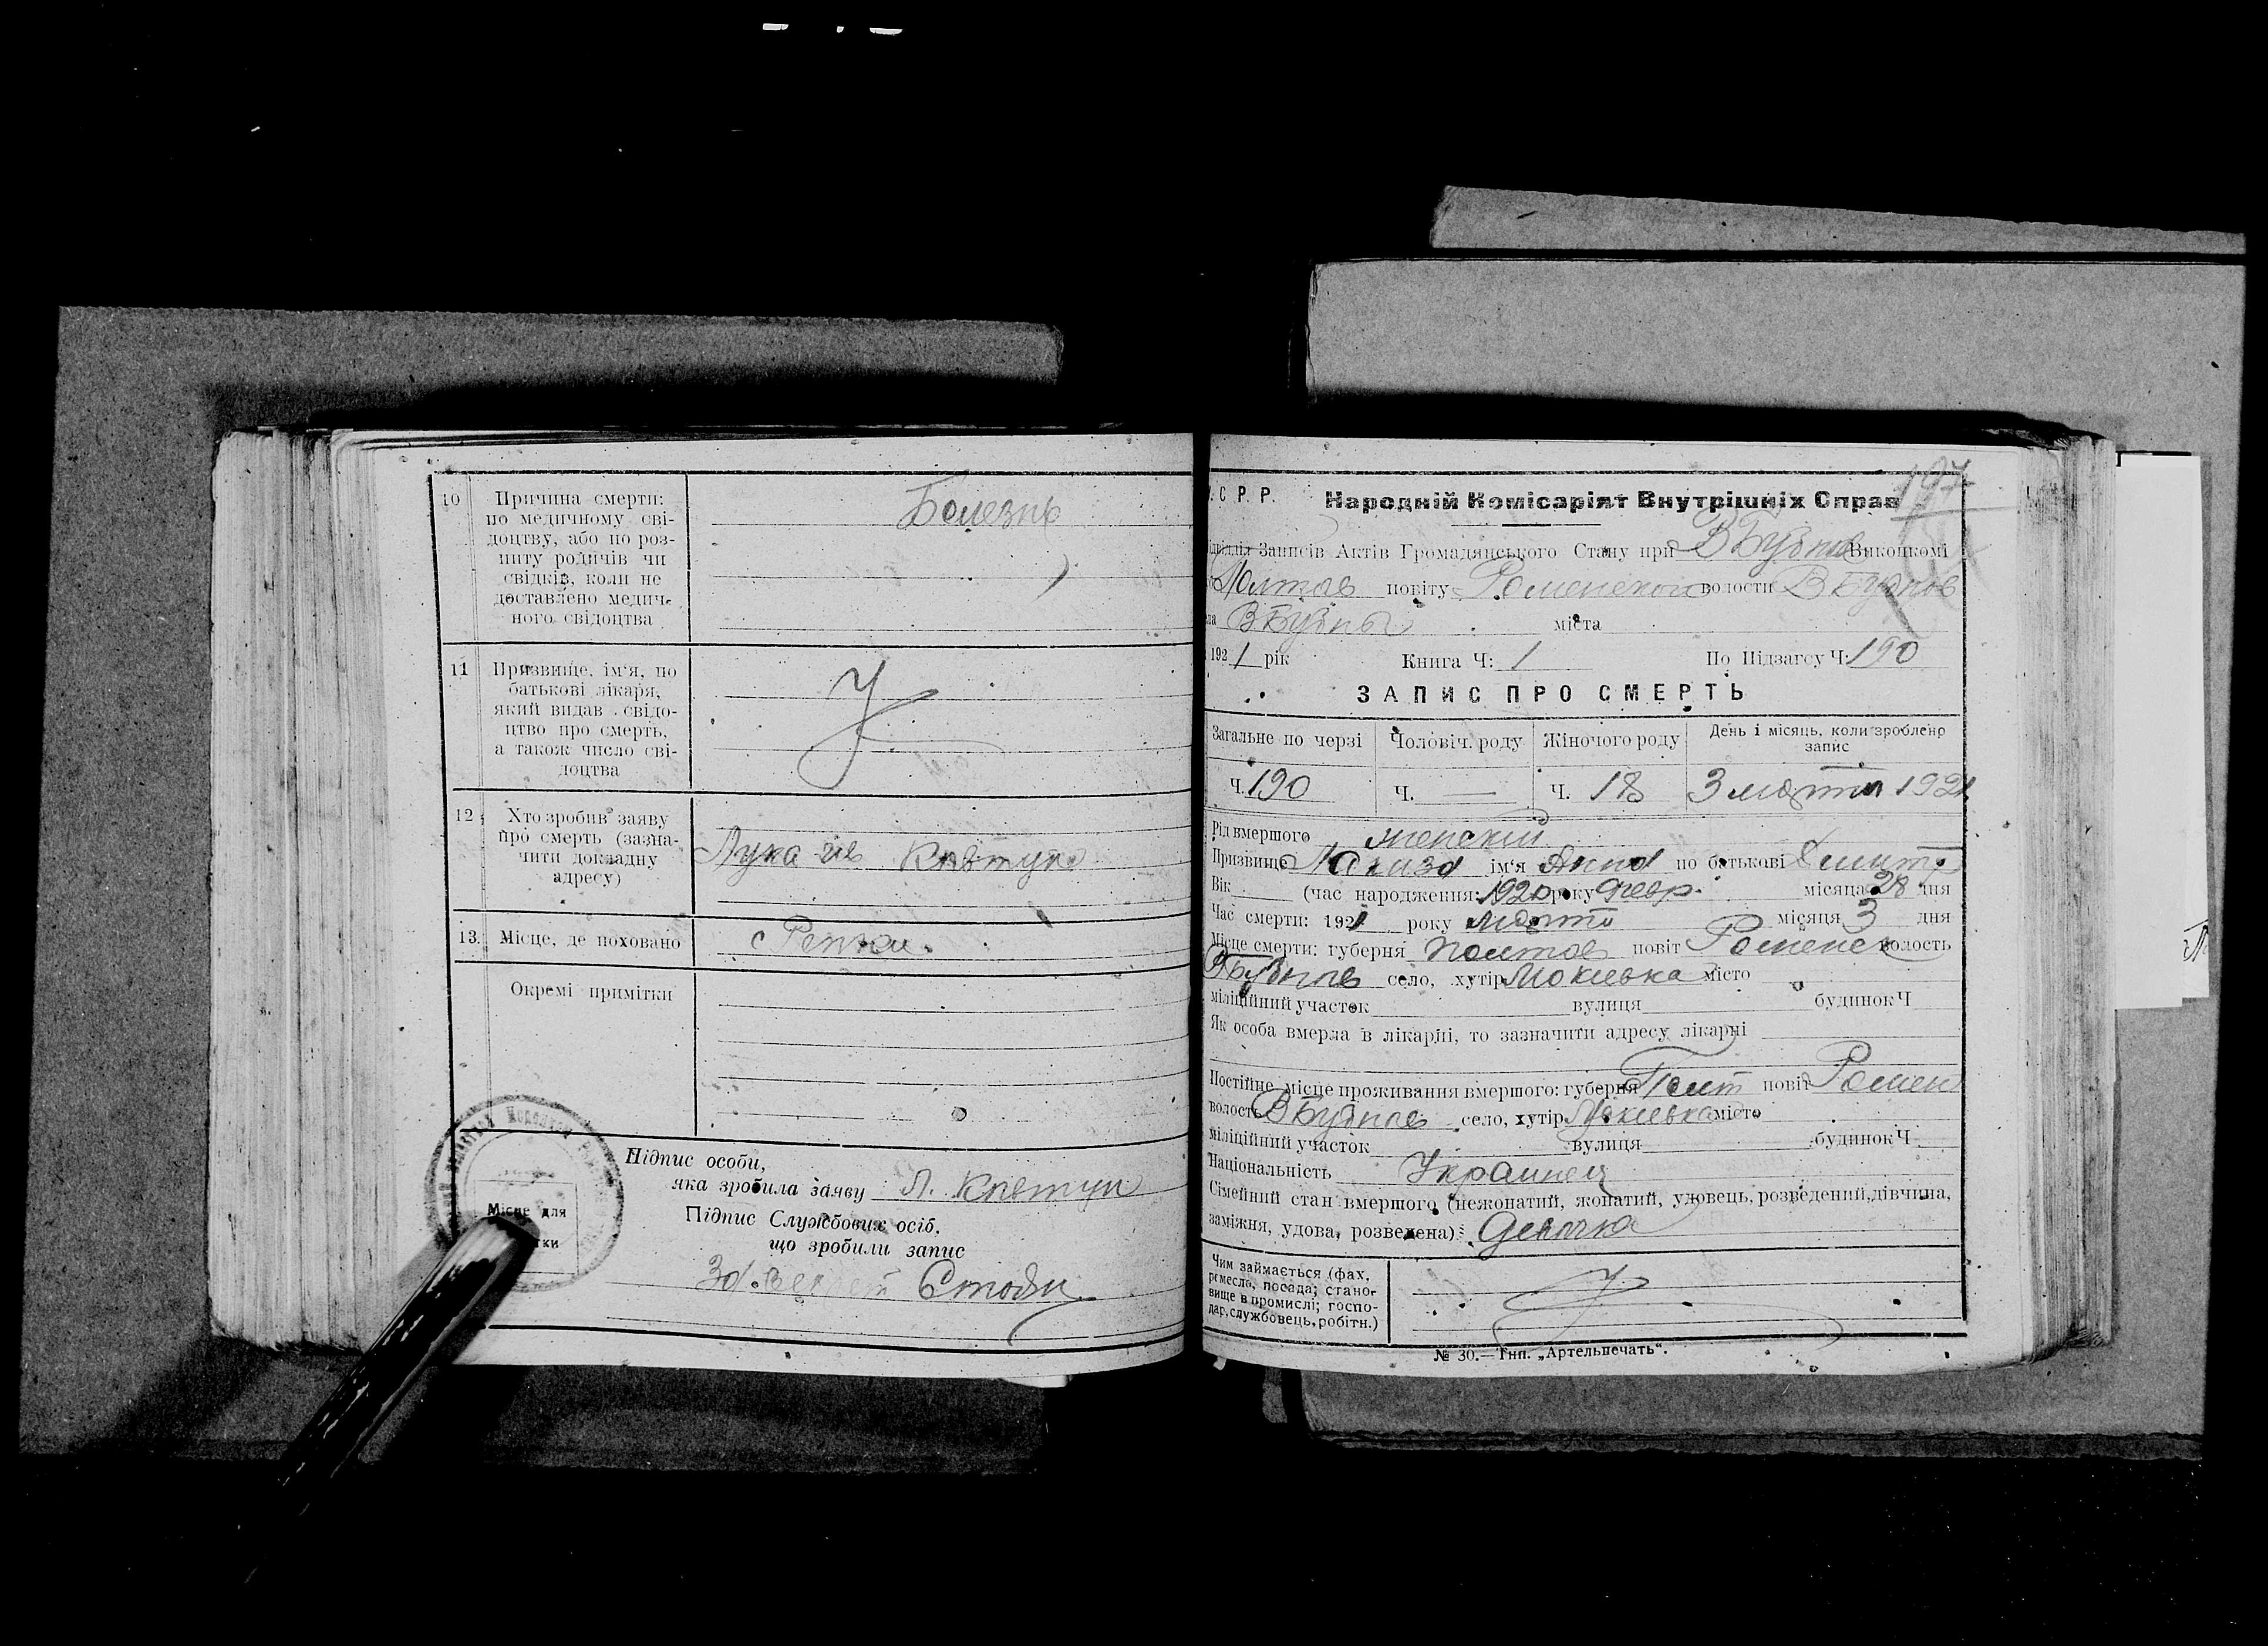 10 Причина смерти:
по медичному сві-
доцтву, або по роз-
питу родичів чи
свідків, коли не
доставлено медич-
ного свідоцтва
Болезнь
11 Призвище, ім'я, по
батькові лікаря,
який видав свідо-
цтво про смерть,
а також число сві-
доцтва
12 Хто зробив заяву
про смерть (зазна-
чити докладну
адресу)
Лука Ив Квтун
13. Місце, де поховано
с
Окремі примітки
Місце для
Підпис особи,
яка зробила заяву Л. Квтун
Підпис Службових осіб,
що зробили запис
197
С. Р. Р. Народній Комісаріят Внутрішніх Справ
Підвідділ Записів Актів Громадянського Стану при ВБубнов Виконкомі
Полтов повіту Роменском волости ВБубнов
ВБубны міста
1921 рік Книга Ч: 1 По Підзагсу Ч: 190
ЗАПИС ПРО СМЕРТЬ
Загальне по черзі Чоловіч. роду Жіночого роду День і місяць, коли зроблено
запис
Ч. 190 Ч. — Ч. 18 3 марта 1921
Рід вмершого женский
Призвище ім'я Анна по батькові
Вік (час народження: 1920 року Февр. місяца 28 дня
Час смерти: 1921 року марта місяця 3 дня
Місце смерти: губерня Полтов повіт Роменск волость
ВБубнов село, хутір Мокиевка місто
міліційний участок вулиця будинок Ч
Як особа вмерла в лікарні, то зазначити адресу лікарні
Постійне місце проживання вмершого: губерня Полт повіт Ромен
волость ВБубнов село, хутір Мокиевка місто
міліційний участок вулиця будинок Ч
Національність Украинец
Сімейний стан вмершого (нежонатий, жонатий, удовець, розведений, дівчина,
заміжня, удова, розведена): Девочка
Чим займається (фах,
ремесло, посада; стано-
вище в промислі; госпо-
дар, службовець, робітн.)
№ 30.—Тип. „Артельпечать“.